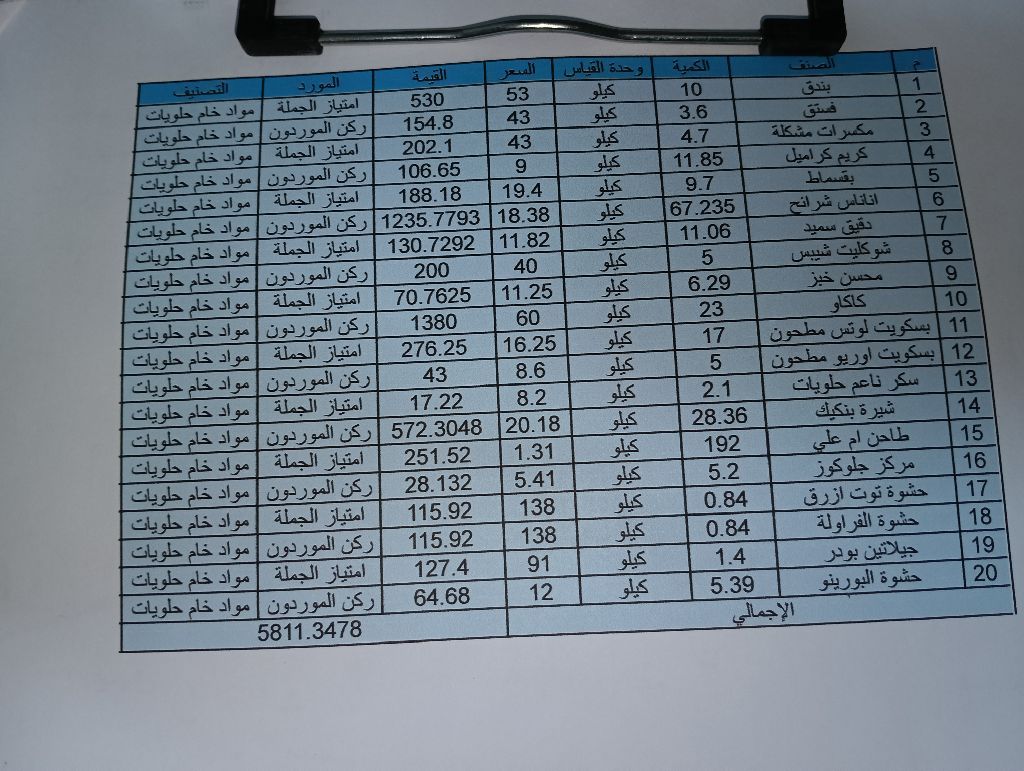 م الصنف الكمية وحدة القياس السعر القيمة المورد التصنيف
1 بندق 10 كيلو 53 530 امتياز الجملة مواد خام حلويات
2 فستق 3.6 كيلو 43 154.8 ركن الموردون مواد خام حلويات
3 مكسرات مشكلة 4.7 كيلو 43 202.1 امتياز الجملة مواد خام حلويات
4 كريم كراميل 11.85 كيلو 9 106.65 ركن الموردون مواد خام حلويات
5 بقسماط 9.7 كيلو 19.4 188.18 امتياز الجملة مواد خام حلويات
6 اناناس شرائح 67.235 كيلو 18.38 1235.7793 ركن الموردون مواد خام حلويات
7 دقيق سميد 11.06 كيلو 11.82 130.7292 امتياز الجملة مواد خام حلويات
8 شوكليت شيبس 5 كيلو 40 200 ركن الموردون مواد خام حلويات
9 محسن خبز 6.29 كيلو 11.25 70.7625 امتياز الجملة مواد خام حلويات
10 كاكاو 23 كيلو 60 1380 ركن الموردون مواد خام حلويات
11 بسكويت لوتس مطحون 17 كيلو 16.25 276.25 امتياز الجملة مواد خام حلويات
12 بسكويت اوريو مطحون 5 كيلو 8.6 43 ركن الموردون مواد خام حلويات
13 سكر ناعم حلويات 2.1 كيلو 8.2 17.22 امتياز الجملة مواد خام حلويات
14 شيرة بنكيك 28.36 كيلو 20.18 572.3048 ركن الموردون مواد خام حلويات
15 طاحن ام علي 192 كيلو 1.31 251.52 امتياز الجملة مواد خام حلويات
16 مركز جلوكوز 5.2 كيلو 5.41 28.132 ركن الموردون مواد خام حلويات
17 حشوة توت ازرق 0.84 كيلو 138 115.92 امتياز الجملة مواد خام حلويات
18 حشوة الفراولة 0.84 كيلو 138 115.92 ركن الموردون مواد خام حلويات
19 جيلاتين بودر 1.4 كيلو 91 127.4 امتياز الجملة مواد خام حلويات
20 حشوة البورينو 5.39 كيلو 12 64.68 ركن الموردون مواد خام حلويات
الإجمالي 5811.3478